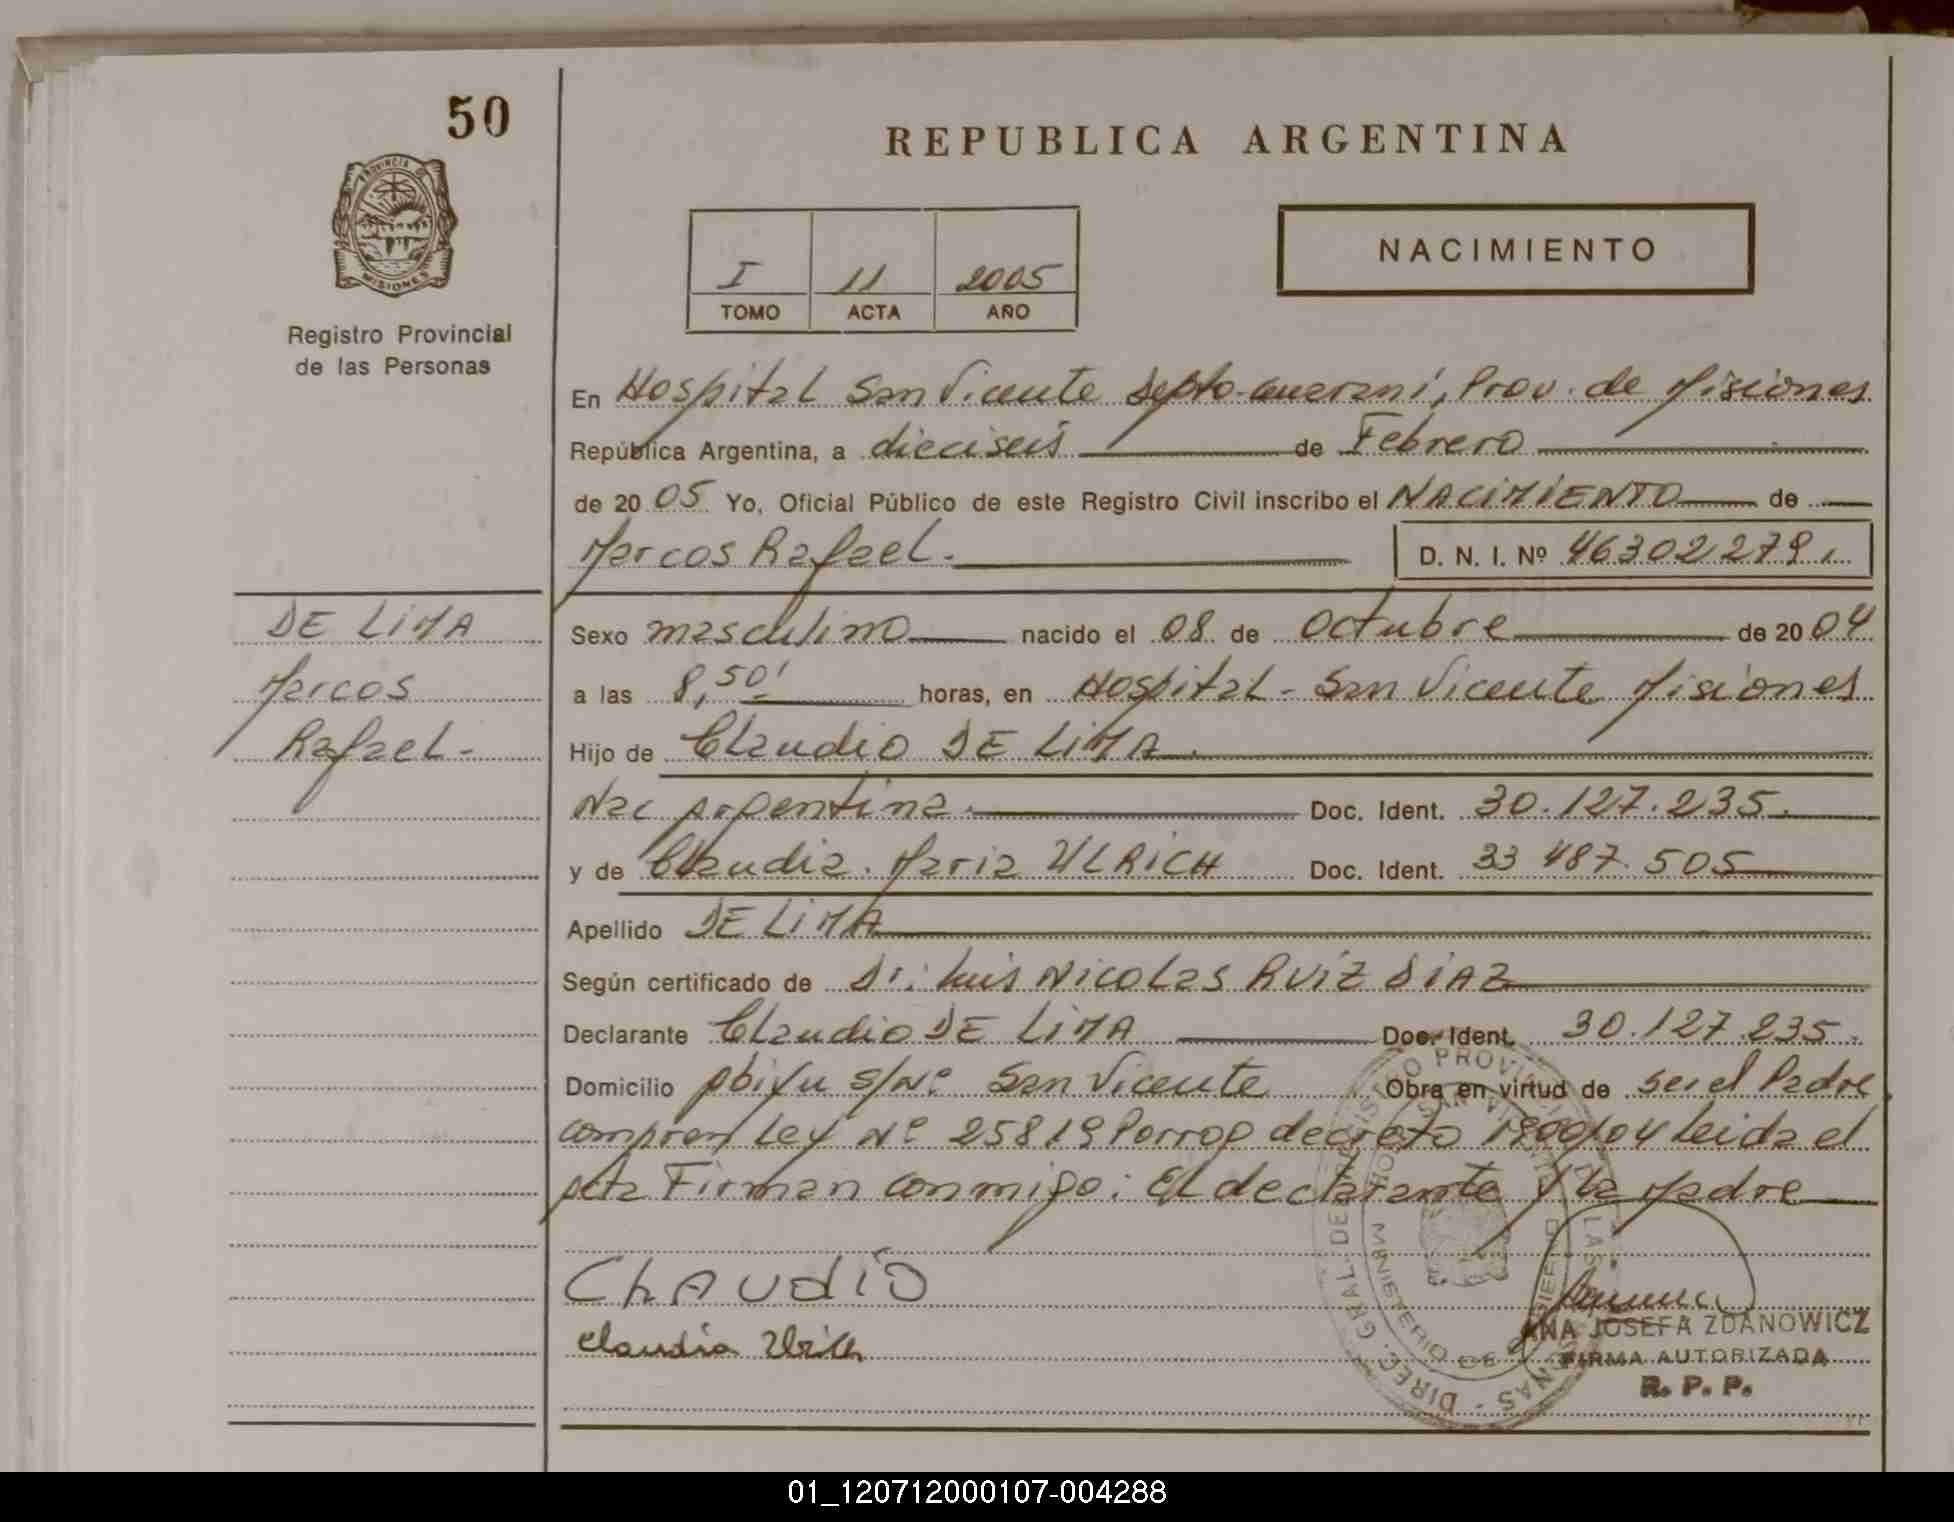 50
REPUBLICA ARGENTINA
PROVINCIA DE
MISIONES
Registro Provincial
de las Personas
NACIMIENTO
I 11 2005
TOMO ACTA AÑO
En Hospital San Vicente Depto-Guarani, Prov. de Misiones
República Argentina, a dieciseis de Febrero
de 20 05 Yo, Oficial Público de este Registro Civil inscribo el NACIMIENTO de
Marcos Rafael. D. N. I. Nº 46302279.
DE LIMA
Marcos
Rafael-
Sexo masculino nacido el 08 de Octubre de 20 04
a las 8,50' horas, en Hospital - San Vicente Misiones
Hijo de Claudio DE LIMA.
Nac Argentina. Doc. Ident. 30.127.235.
y de Claudia. Maria ULRICH Doc. Ident. 33 487. 505
Apellido DE LIMA
Según certificado de Dr: Luis Nicolas RUIZ DIAZ
Declarante Claudio DE LIMA Doc. Ident. 30.127.235.
Domicilio s/Nº San Vicente Obra en virtud de ser el Padre
Ley Nº 25819 decreto leida el
Acta Firman conmigo: El declarante y la Madre
CLAUDIO
Claudia Ulrich
DIREC. GRAL. DEL REGISTRO PROVINCIAL DE LAS PERSONAS
HOSP. SAN VICENTE
MINISTERIO DE GOBIERNO
ANA JOSEFA ZDANOWICZ
FIRMA AUTORIZADA
R. P. P.
01_120712000107-004288